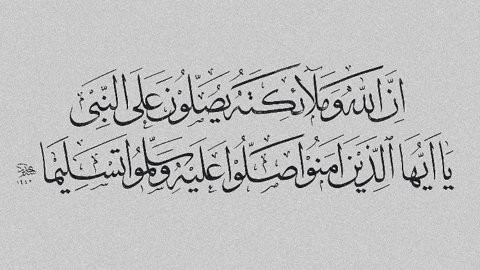 اِنَّ اللّٰهَ وَمَلَآئِكَتَهُ يُصَلُّوْنَ عَلَى النَّبِىِّ
يَا اَيُّهَا الَّذِيْنَ اٰمَنُوْا صَلُّوْا عَلَيْهِ وَسَلِّمُوْا تَسْلِيْمًا
١٤٤٥